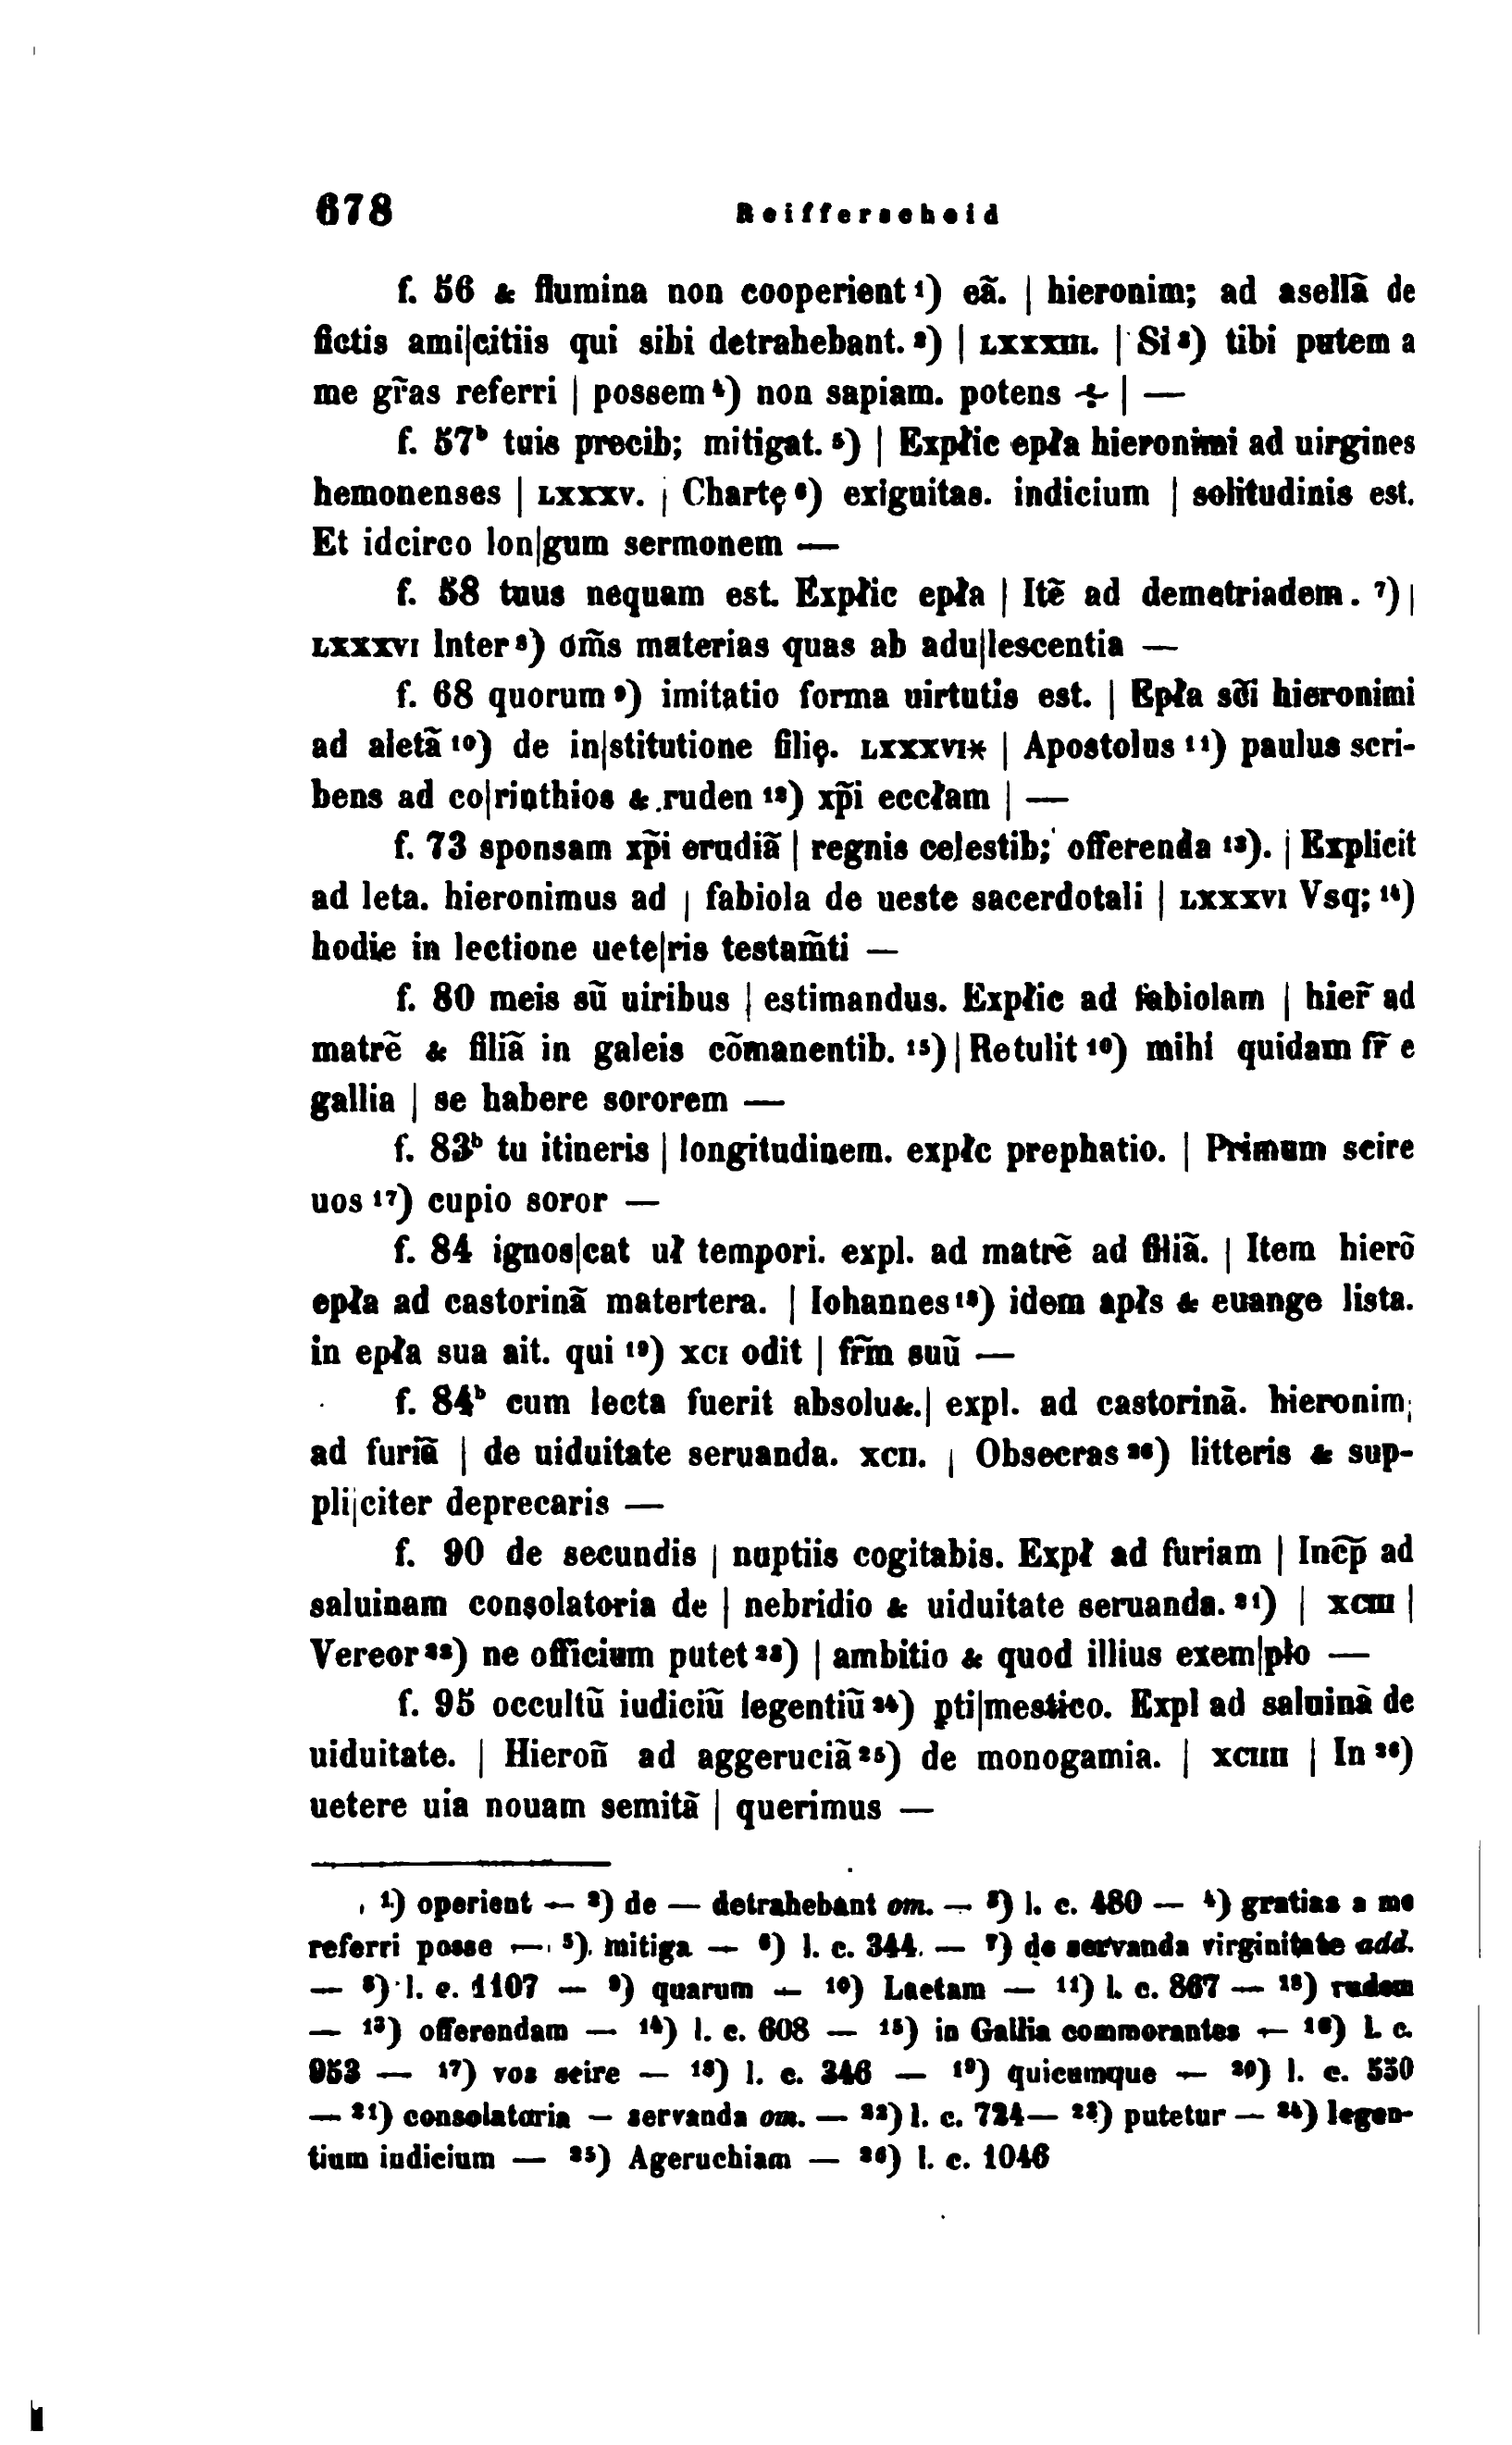 678 Reifferscheid
f. 56 & flumina non cooperient ¹) eã. | hieronim; ad asellã de
fictis ami|citiis qui sibi detrahebant. ²) | LXXXIII. | Si ³) tibi putem a
me gr̃as referri | possem ⁴) non sapiam. potens ÷ | —
f. 57ᵇ tuis precib; mitigat. ⁵) | Expłic epła hieronimi ad uirgines
hemonenses | LXXXV. | Chartę ⁶) exiguitas. indicium | solitudinis est.
Et idcirco lon|gum sermonem —
f. 58 tuus nequam est. Expłic epła | Itẽ ad demetriadem. ⁷) |
LXXXVI Inter ⁸) om̃s materias quas ab adu|lescentia —
f. 68 quorum ⁹) imitatio forma uirtutis est. | Epła sc̃i hieronimi
ad aletã ¹⁰) de in|stitutione filię. LXXXVI* | Apostolus ¹¹) paulus scri-
bens ad co|rinthios & ruden ¹²) xp̃i eccłam | —
f. 73 sponsam xp̃i erudiã | regnis celestib; offerenda ¹³). | Explicit
ad leta. hieronimus ad | fabiola de ueste sacerdotali | LXXXVI Vsq; ¹⁴)
hodie in lectione uete|ris testam̃ti —
f. 80 meis sũ uiribus | estimandus. Expłic ad fabiolam | hier̃ ad
matrẽ & filiã in galeis cõmanentib. ¹⁵) | Retulit ¹⁶) mihi quidam fr̃ e
gallia | se habere sororem —
f. 83ᵇ tu itineris | longitudinem. expłc prephatio. | Primum scire
uos ¹⁷) cupio soror —
f. 84 ignos|cat uł tempori. expl. ad matrẽ ad filiã. | Item hierõ
epła ad castorinã matertera. | Iohannes ¹⁸) idem apłs & euange lista.
in epła sua ait. qui ¹⁹) XCI odit | fr̃m suũ —
f. 84ᵇ cum lecta fuerit absolu&.| expl. ad castorinã. hieronim;
ad furiã | de uiduitate seruanda. XCII. | Obsecras ²⁰) litteris & sup-
pli|citer deprecaris —
f. 90 de secundis | nuptiis cogitabis. Expł ad furiam | Inc̃p̃ ad
saluinam consolatoria de | nebridio & uiduitate seruanda. ²¹) | XCIII |
Vereor ²²) ne officium putet ²³) | ambitio & quod illius exem|plo —
f. 95 occultũ iudiciũ legentiũ ²⁴) pti|mestico. Expl ad saluinã de
uiduitate. | Hieroñ ad aggeruciã ²⁵) de monogamia. | XCIIII | In ²⁶)
uetere uia nouam semitã | querimus —
¹) operient — ²) de — detrahebant om. — ³) l. c. 480 — ⁴) gratias a me
referri posse — ⁵) mitiga — ⁶) l. c. 344. — ⁷) de servanda virginitate add.
— ⁸) l. c. 1107 — ⁹) quarum — ¹⁰) Laetam — ¹¹) l. c. 867 — ¹²) rudem
— ¹³) offerendam — ¹⁴) l. c. 608 — ¹⁵) in Gallia commorantes — ¹⁶) l. c.
953 — ¹⁷) vos scire — ¹⁸) l. c. 346 — ¹⁹) quicumque — ²⁰) l. c. 550
— ²¹) consolatoria — servanda om. — ²²) l. c. 724 — ²³) putetur — ²⁴) legen-
tium iudicium — ²⁵) Ageruchiam — ²⁶) l. c. 1046